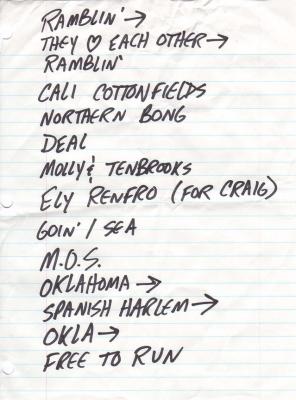 RAMBLIN' →
THEY ♡ EACH OTHER →
RAMBLIN'
CALI COTTONFIELDS
NORTHERN BONG
DEAL
MOLLY & TENBROOKS
ELY RENFRO (FOR CRAIG)
GOIN' / SEA
M.O.S.
OKLAHOMA →
SPANISH HARLEM →
OKLA →
FREE TO RUN